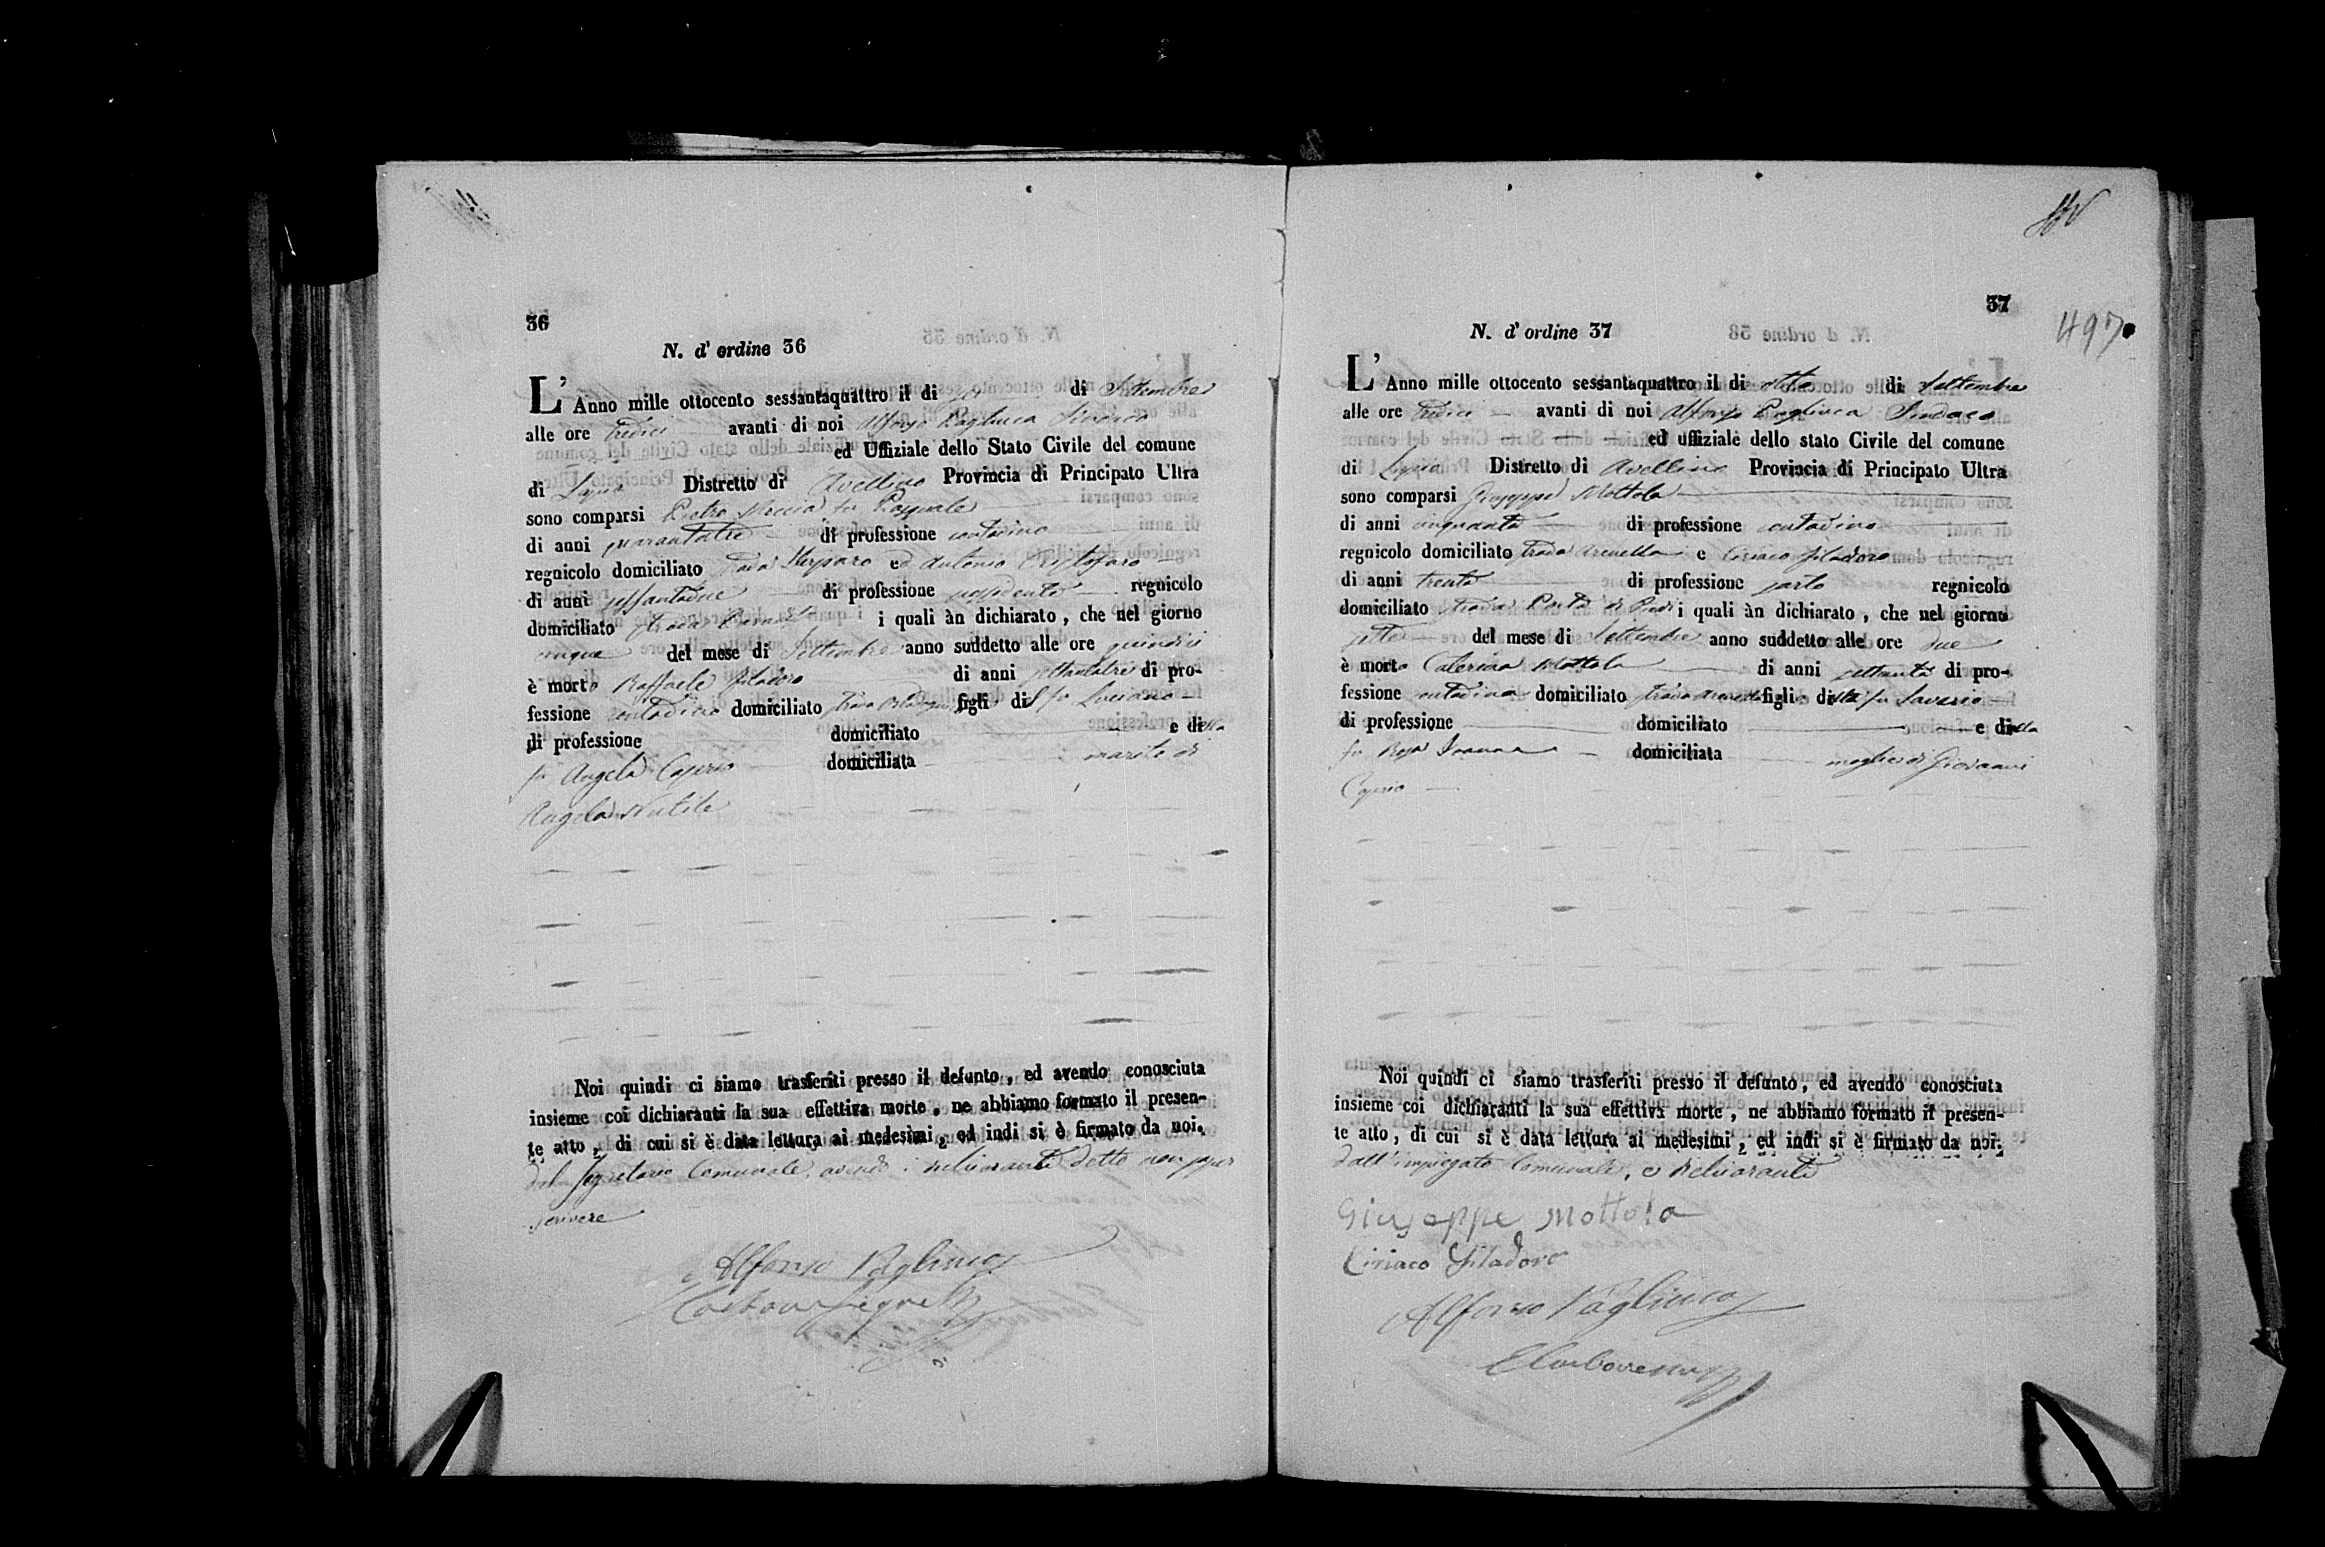 36
N. d' ordine 36
L' Anno mille ottocento sessantaquattro il dì sei di Settembre
alle ore tredici avanti di noi Alfonso Pagliuca Sindaco
ed Uffiziale dello Stato Civile del comune
di Distretto di Avellino Provincia di Principato Ultra
sono comparsi Pietro Meccia fu Pasquale
di anni quarantatre di professione contadino
regnicolo domiciliato ed Antonio Cristofaro
di anni sessantadue di professione possidente regnicolo
domiciliato strada i quali àn dichiarato, che nel giorno
cinque del mese di Settembre anno suddetto alle ore quindici
è morto Raffaele Filadoro di anni settantatre di pro-
fessione contadino domiciliato strada figli di fu Luciano
di professione domiciliato e della
fu Angela Caperio domiciliata marito di
Angela Nutile
Noi quindi ci siamo trasferiti presso il defunto, ed avendo conosciuta
insieme coi dichiaranti la sua effettiva morte, ne abbiamo formato il presen-
te atto, di cui si è data lettura ai medesimi, ed indi si è firmato da noi.
dal Segretario Comunale, avendo i dichiaranti detto non saper
scrivere
Alfonso Pagliuca
37
497
N. d' ordine 37
L' Anno mille ottocento sessantaquattro il di otto di Settembre
alle ore tredici avanti di noi Alfonso Pagliuca Sindaco
ed uffiziale dello stato Civile del comune
di Distretto di Avellino Provincia di Principato Ultra
sono comparsi Giuseppe Mottola
di anni cinquanta di professione contadino
regnicolo domiciliato strada Arenella e Ciriaco Filadoro
di anni trenta di professione sarto regnicolo
domiciliato strada Porta di Piedi i quali àn dichiarato, che nel giorno
sette del mese di Settembre anno suddetto alle ore due
è morta Caterina Mottola di anni settanta di pro-
fessione contadina domiciliato strada Arenella figlia di fu Saverio
di professione domiciliato e della
fu Rosa domiciliata moglie di Giovanni
Caperio
Noi quindi ci siamo trasferiti presso il defunto, ed avendo conosciuta
insieme coi dichiaranti la sua effettiva morte, ne abbiamo formato il presen-
te atto, di cui si è data lettura ai medesimi, ed indi si è firmato da noi.
dall'impiegato Comunale, e dichiaranti
Giuseppe Mottola
Ciriaco Filadoro
Alfonso Pagliuca